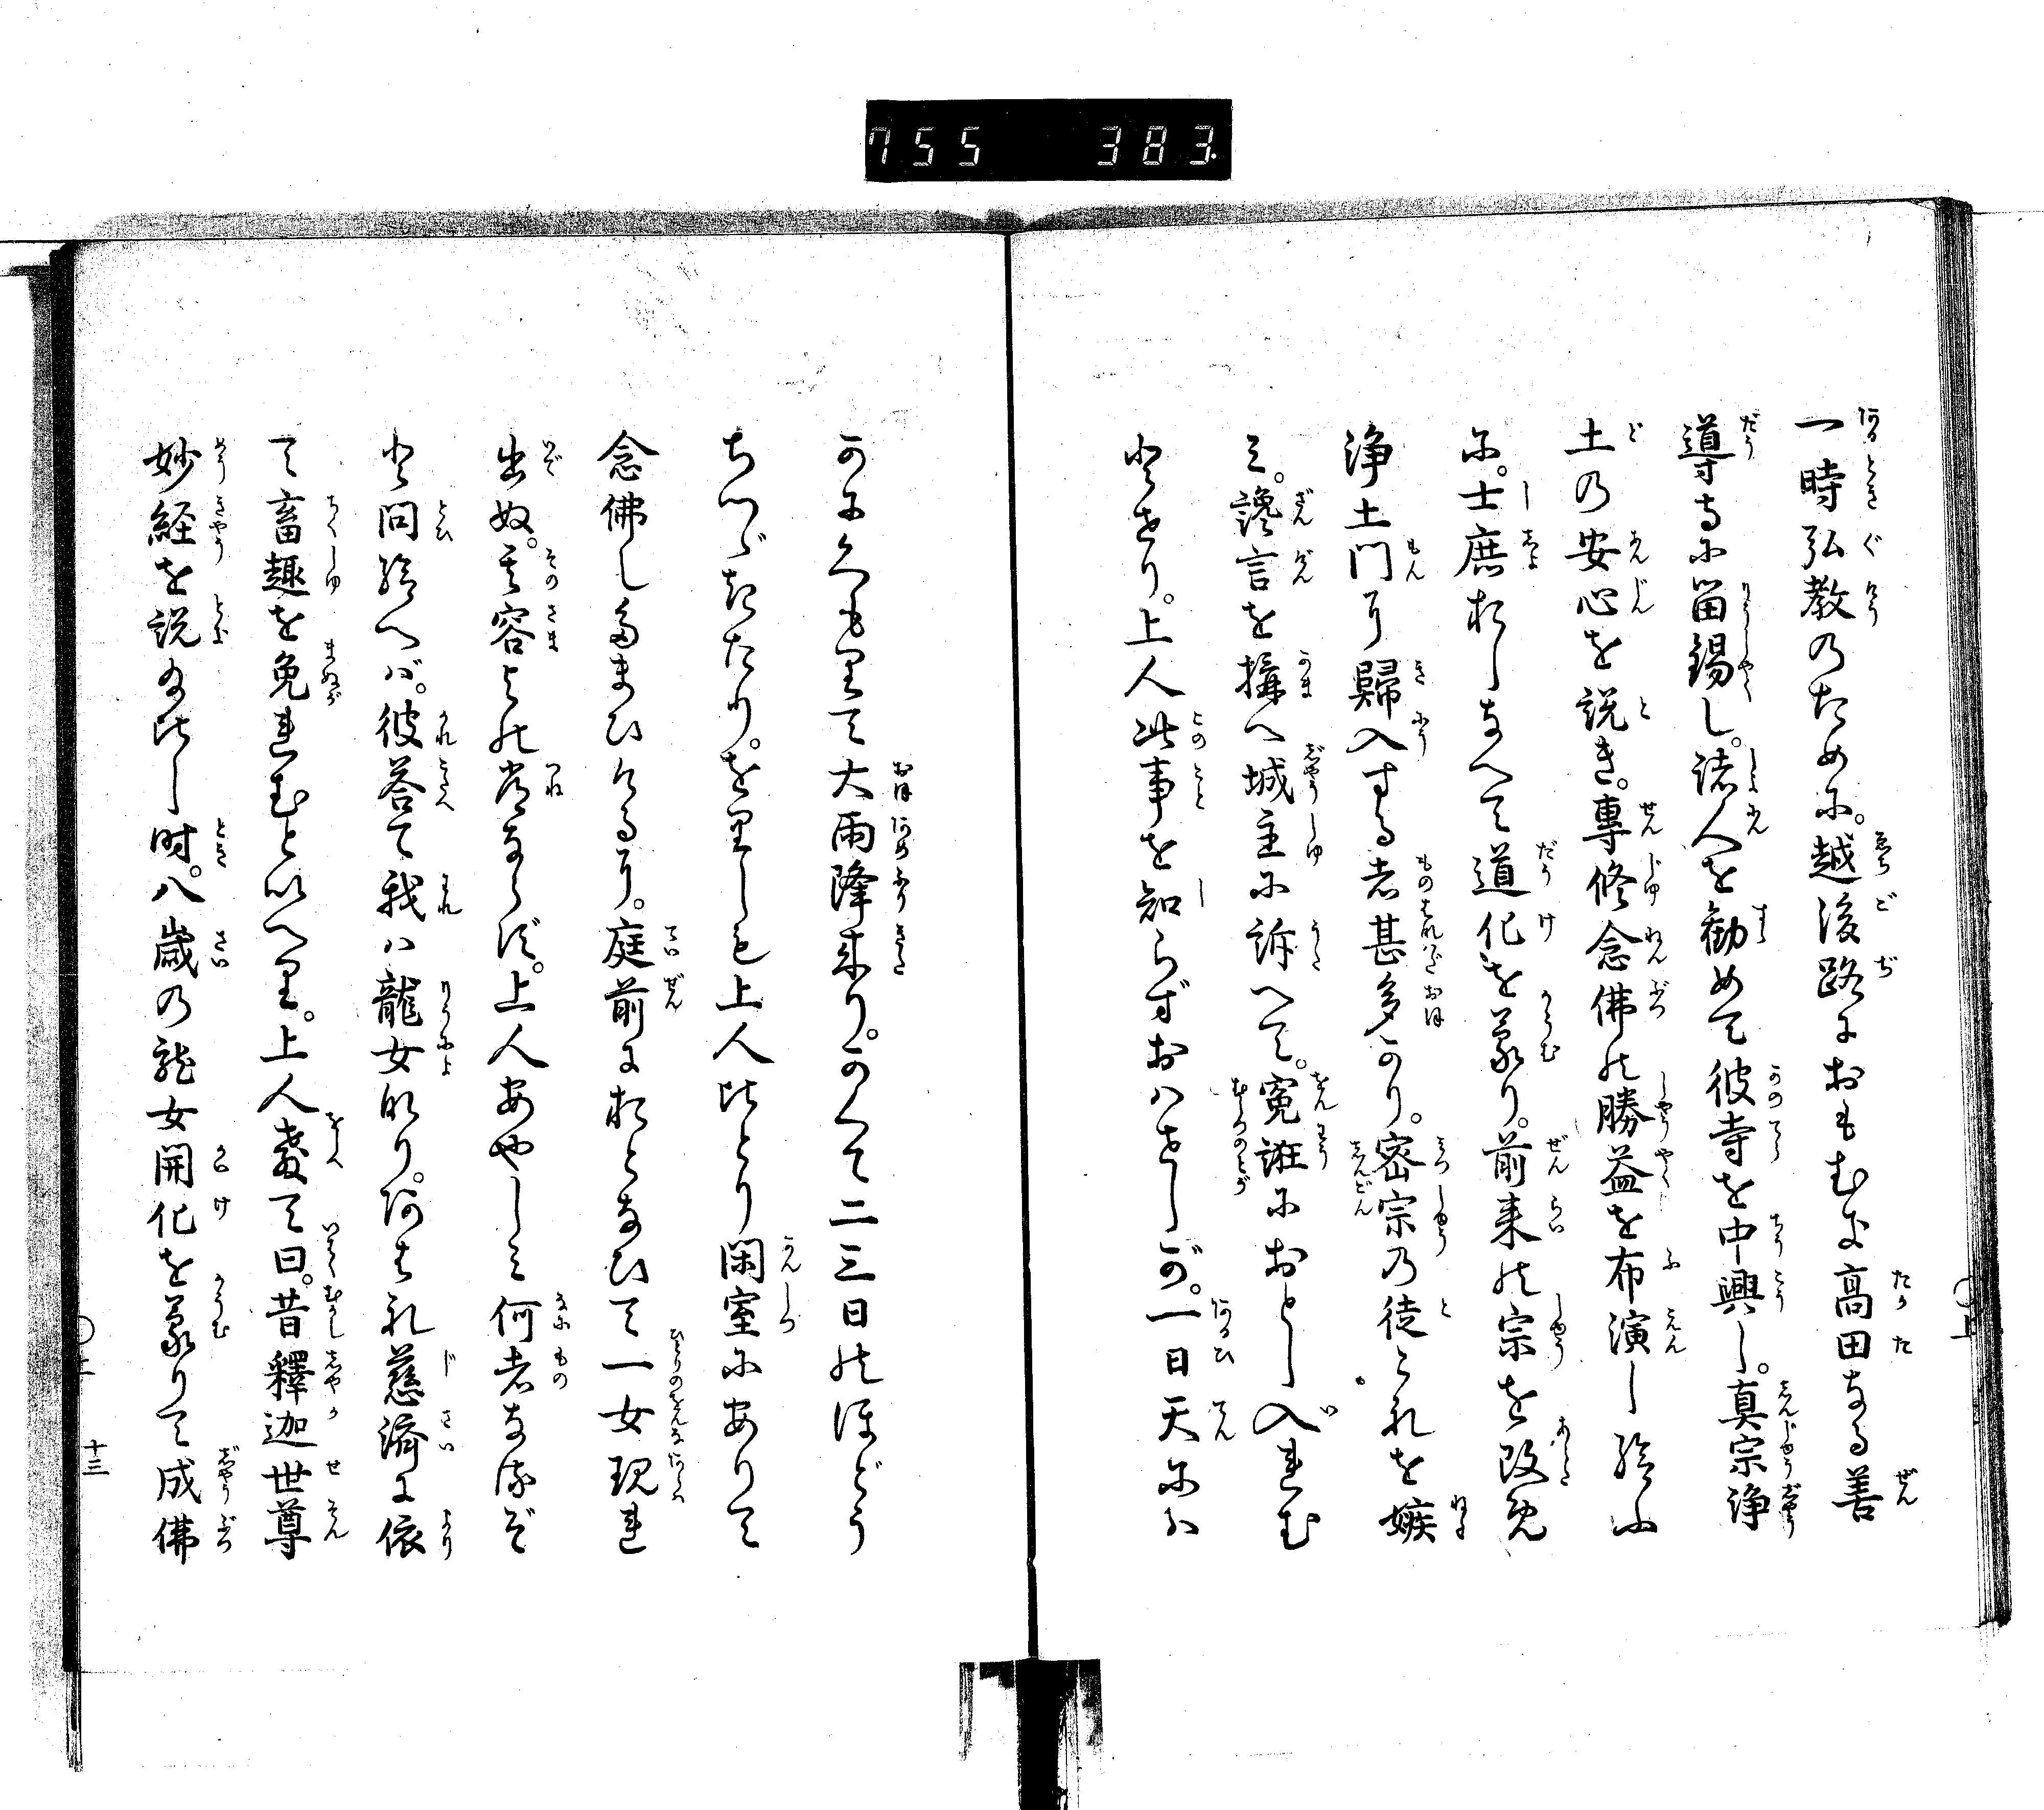 755 383.
一時弘教のために。越後路におもむき高田なる善
導寺に留錫し。諸人を勧めて彼寺を中興し。真宗浄
土の安心を説き。専修念佛の勝益を布演し給ふ
に。士庶おしなへて道化を蒙り。前来の宗を改め
浄土門に歸入する者甚多かり。密宗の徒これを嫉
み。讒言を搆へ城主に訴へて。寃誑におとし入れむ
とせり。上人此事を知らずおはせしが。一日天には
かにくもりて大雨降来り。かくて二三日のほどう
ちつゞきたり。をりしも上人ひとり閑室にありて
念佛し給ひけるに。庭前におとなひて一女現れ
出ぬ。其容よの常ならず。上人あやしみ何者なるぞ
と問給へば。彼答て我は龍女なり。あはれ慈済に依
て畜趣を免れむといへり。上人教て曰。昔釋迦世尊
妙経を説給ひし時。八歳の龍女開化を蒙りて成佛
上
上 十三